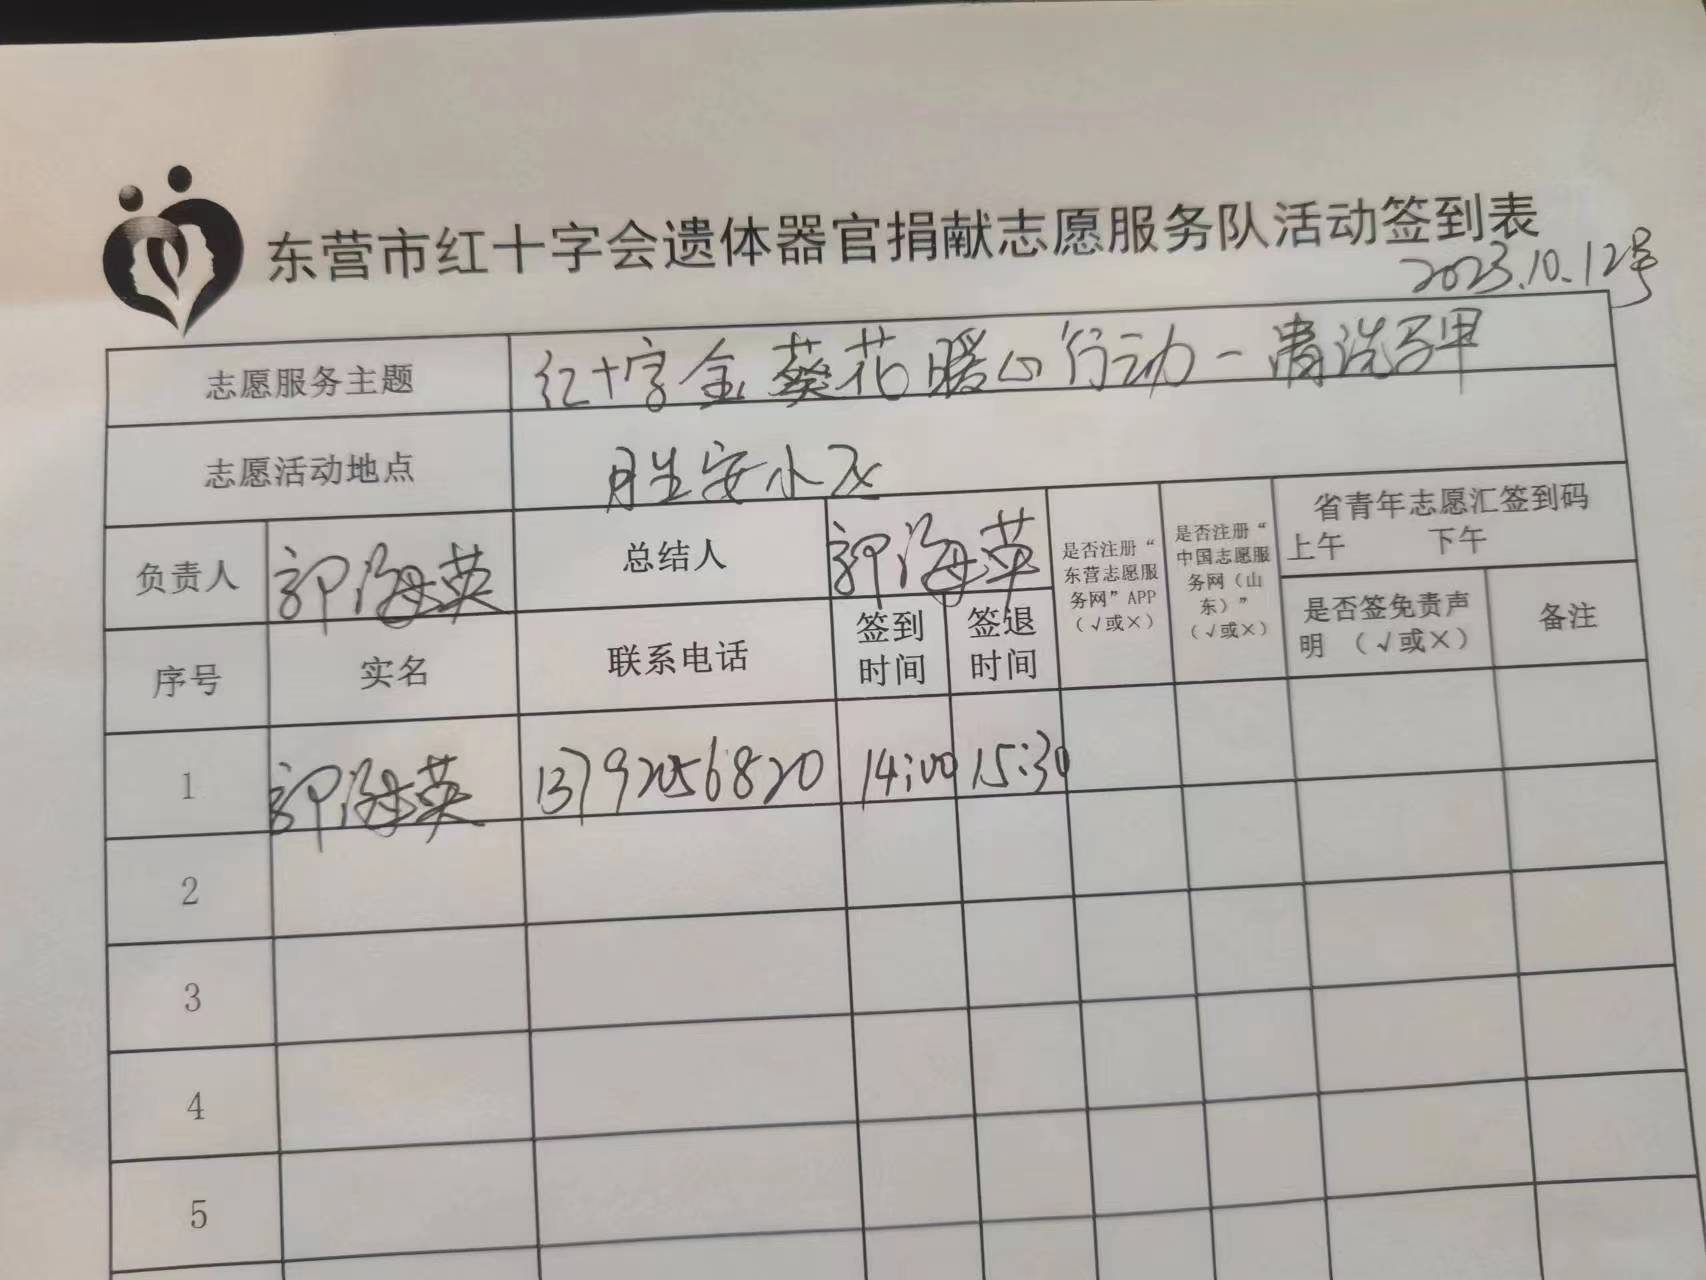 东营市红十字会遗体器官捐献志愿服务队活动签到表
2023.10.12号
志愿服务主题 红十字金葵花暖心行动-清洗
志愿活动地点 胜安小区
负责人 郭海英 总结人 郭海萍 是否注册“东营志愿服务网”APP（√或×） 是否注册“中国志愿服务网（山东）”（√或×） 省青年志愿汇签到码
上午 下午
是否签免责声明 （√或×） 备注
序号 实名 联系电话 签到时间 签退时间
1 郭海英 13792056820 14:00 15:30
2
3
4
5